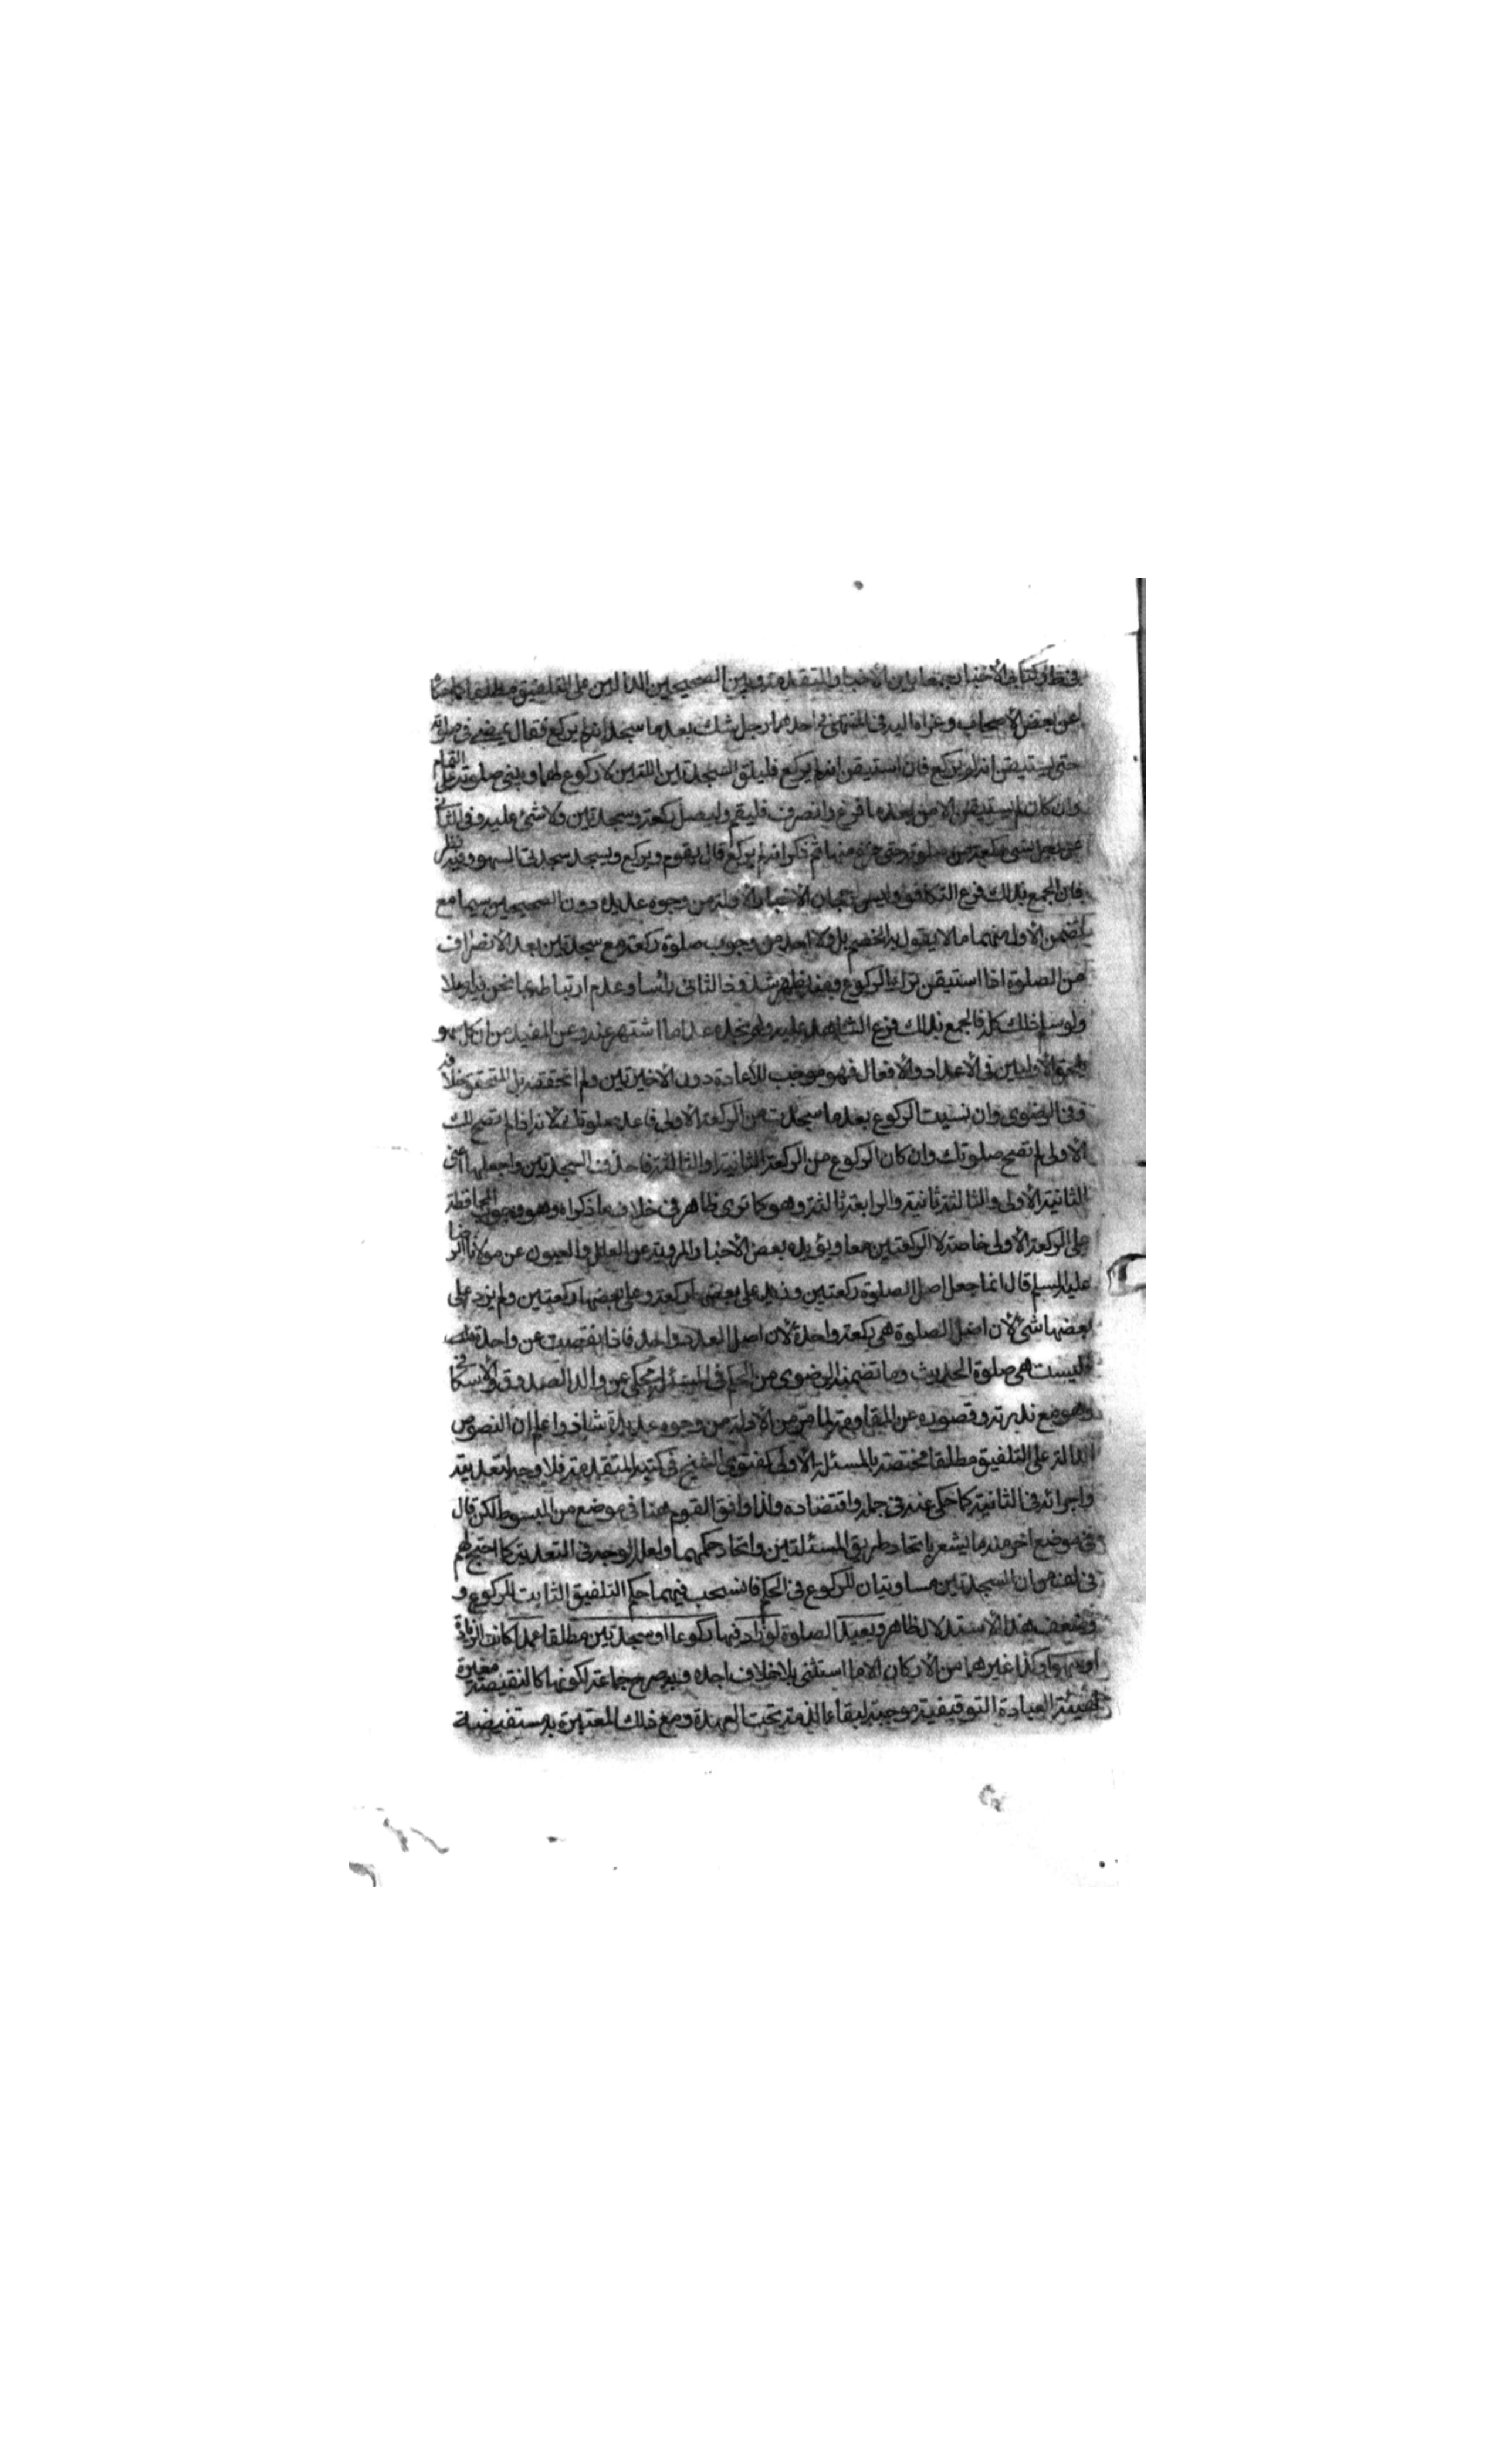 في كتابي الأخبار جمعا بين الأخبار المتقدمة وبين الصحيحين الدالين على التلفيق مطلقا كما حكاه
عن بعض الأصحاب وعزاه اليه في المنتهى في احدهما رجل شك بعد ما سجد انه لم يركع فقال يمضي في صلوته
حتى يستيقن انه لم يركع فان استيقن انه لم يركع فليلق السجدتين اللتين لا ركوع لهما ويبني صلوته على التمام
وان كان لم يستيقن الا من بعد ما فرغ وانصرف فليقم وليصل ركعة وسجدتين ولا شئ عليه وفي الثاني
عن رجل نسي ركعة من صلوته حتى فرغ منها ثم ذكر انه لم يركع قال يقوم ويركع ويسجد سجدتي السهو وفيه نظر
فان الجمع بذلك فرع التكافؤ وليس لرجحان الأخبار الأولة من وجوه عديدة دون الصحيحين سيما مع
تضمن الأول منهما ما لا يقول به الخصم بل ولا احد من وجوب صلوة ركعة مع سجدتين بعد الانصراف
من الصلوة اذا استيقن ترك الركوع ومنه يظهر شذوذ الثاني رأسا وعدم ارتباطه بما نحن فيه اصلا
ولو سلم ذلك كله فالجمع بذلك فرع الشاهد عليه ولم نجده عدا ما اشتهر عنه وعن المفيد من ان كل سهو
يلحق الأوليين في الأعداد والأفعال فهو موجب للأعادة دون الاخيرتين ولم نتحققه بل المتحقق خلافه
وفي الرضوي وان نسيت الركوع بعد ما سجدت من الركعة الاولى فاعد صلوتك لانه اذا لم تصح لك
الأولى لم تصح صلوتك وان كان الركوع من الركعة الثانية او الثالثة فاحذف السجدتين واجعلها اعني
الثانية الأولى والثالثة ثانية والرابعة ثالثة وهو كما ترى ظاهر في خلاف ما ذكراه وهو وجوب المحافظة
على الركعة الأولى خاصة لا الركعتين معا ويؤيده بعض الأخبار المروية عن العلل والعيون عن مولانا الرضا
عليه السلم قال انما جعل اصل الصلوة ركعتين وزيد على بعضها ركعة وعلى بعضها ركعتين ولم يزد على
بعضها شئ لأن اصل الصلوة هي ركعة واحدة لأن اصل العدد واحد فاذا نقصت عن واحدة
فليست هي صلوة الحديث وما تضمنه الرضوي من الحكم في المسئلة محكي عن والد الصدوق والاسكافي
وهو مع ندرته وقصوره عن المقاومة لما مر من الأدلة من وجوه عديدة شاذ واعلم ان النصوص
الدالة على التلفيق مطلقا مختصة بالمسئلة الأولى كفتوى الشيخ في كتبه المتقدمة فلا وجه لتعديته
واجرائه في الثانية كما حكي عنه في جمله واقتصاده ولذا وافق القوم هنا في موضع من المبسوط لكن قال
في موضع اخر منه ما يشعر باتحاد طريق المسئلتين واتحاد حكمهما ولعل الوجه في التعدية كما احتج لهم
في لف من ان السجدتين مساويتان للركوع في الحكم فانسحب فيهما حكم التلفيق الثابت للركوع و
ضعف هذا الاستدلال ظاهر ويعيد الصلوة لو زاد فيها ركوعا او سجدتين مطلقا عمدا كانت الزيادة
او سهوا وكذا غيرهما من الأركان الا ما استثني بلا خلاف اجده وبه صرح جماعة لكونها كالنقيصة مغيرة
لهيئة العبادة التوقيفية موجبة لبقاء الذمة تحت العهدة ومع ذلك المعتبرة به مستفيضة